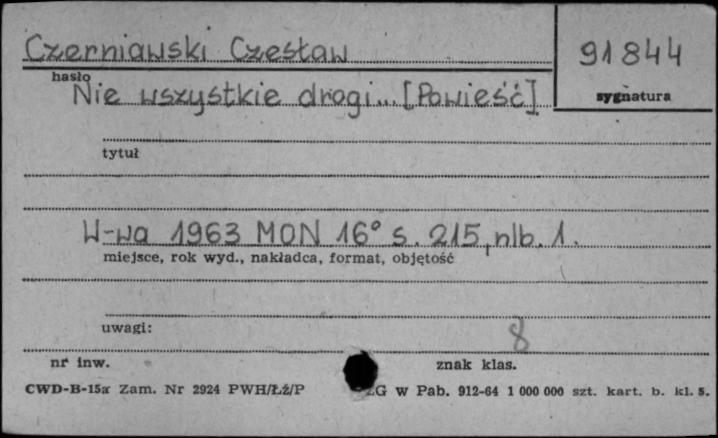 Czerniawski Czesław
91844
hasło
sygnatura
Nie wszystkie drogi... [Powieść]
tytuł
W-wa 1963 MON 16° s. 215, nlb. 1.
miejsce, rok wyd., nakładca, format, objętość
uwagi:
8
nr inw.
znak klas.
CWD-B-15a Zam. Nr 2924 PWH/Łź/P ZG w Pab. 912-64 1 000 000 szt. kart. b. kl. 5.